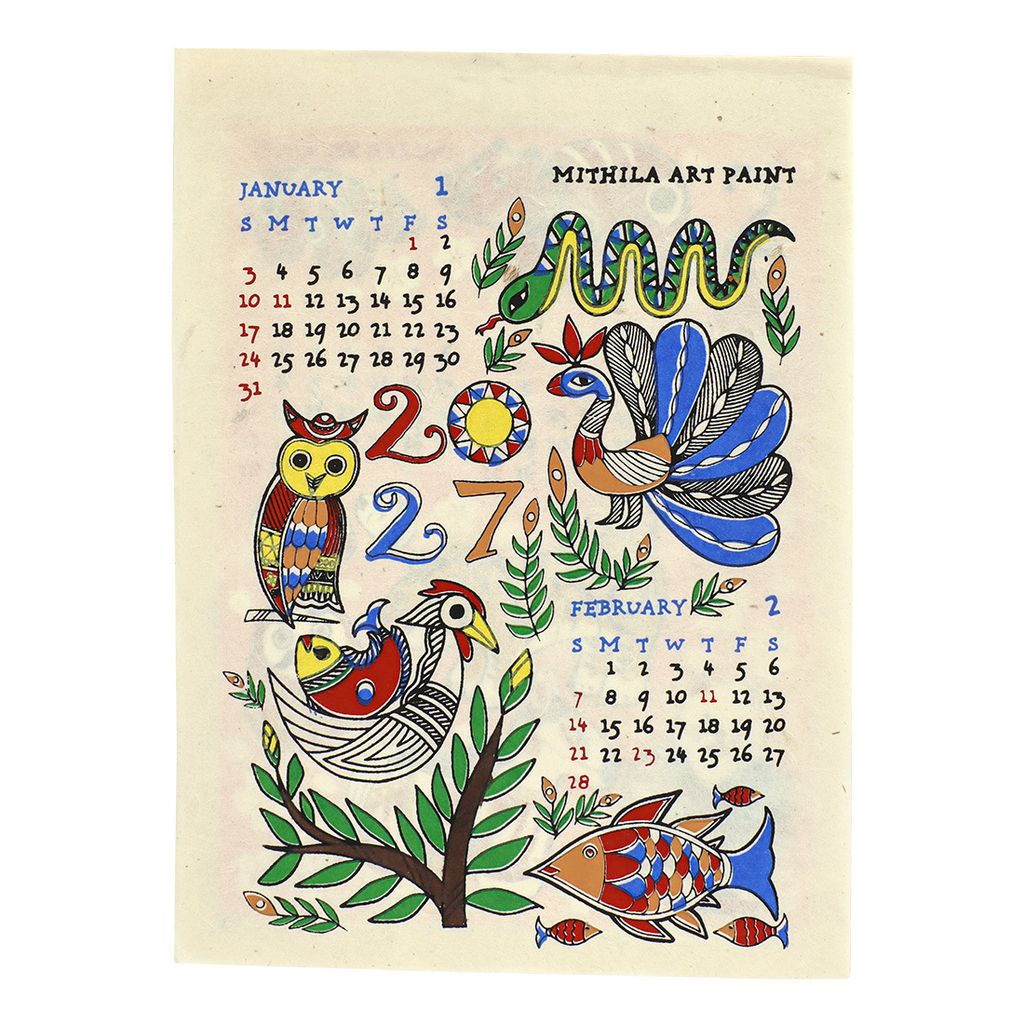 MITHILA ART PAINT
JANUARY 1
S M T W T F S
1 2
3 4 5 6 7 8 9
10 11 12 13 14 15 16
17 18 19 20 21 22 23
24 25 26 27 28 29 30
31
20
27
FEBRUARY 2
S M T W T F S
1 2 3 4 5 6
7 8 9 10 11 12 13
14 15 16 17 18 19 20
21 22 23 24 25 26 27
28